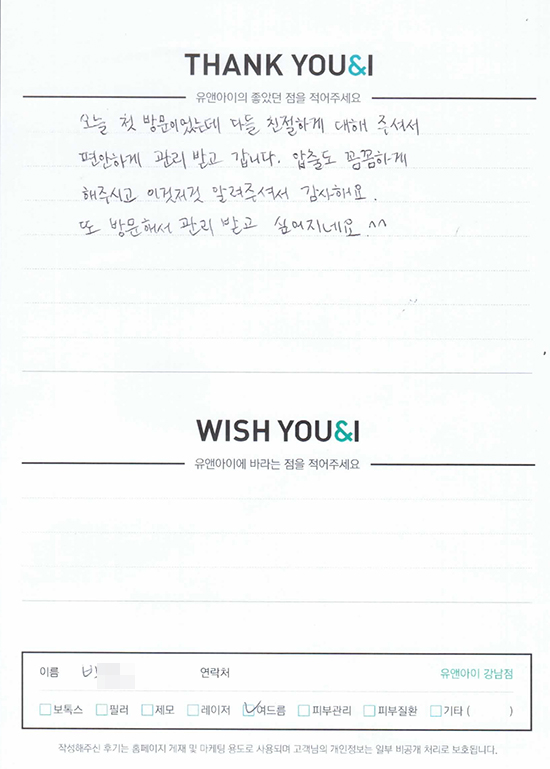 THANK YOU&I
유앤아이의 좋았던 점을 적어주세요
오늘 첫 방문이었는데 다들 친절하게 대해 주셔서
편안하게 관리 받고 갑니다. 압출도 꼼꼼하게
해주시고 이것저것 알려주셔서 감사해요.
또 방문해서 관리 받고 싶어지네요.^^
WISH YOU&I
유앤아이에 바라는 점을 적어주세요
이름 연락처 유앤아이 강남점
보톡스 필러 제모 레이저 여드름 피부관리 피부질환 기타 ( )
작성해주신 후기는 홈페이지 게재 및 마케팅 용도로 사용되며 고객님의 개인정보는 일부 비공개 처리로 보호됩니다.